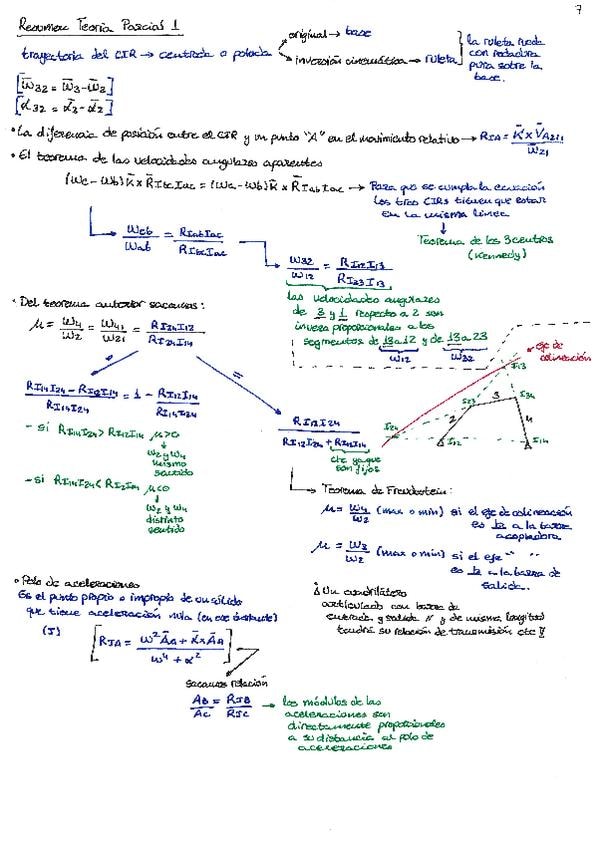 7
Resumen Teoría Parcial 1
trayectoria del CIR → centroda o polada
original → base
inversión cinemática → ruleta
la ruleta rueda
con rodadura
pura sobre la
base.
[ω̄32 = ω̄3 - ω̄2]
[ᾱ32 = ᾱ3 - ᾱ2]
• La diferencia de posición entre el CIR y un punto "A" en el movimiento relativo → RIA = K̄ x V̄A21 / ω21
• El teorema de las velocidades angulares aparentes
(ωc - ωb) K̄ x R̄IbcIac = (ωa - ωb) K̄ x R̄IabIac → Para que se cumpla la ecuación
los tres CIRs tienen que estar
en la misma línea
Teorema de los 3 centros
(Kennedy)
ωcb / ωab = RIabIac / RIbcIac
ω32 / ω12 = RI12I13 / RI23I13
las velocidades angulares
de 3 y 1 respecto a 2 son
inversa proporcionales a los
segmentos de 13a12 y de 13a23
ω12 ω32
• Del teorema anterior sacamos:
μ = ω4/ω2 = ω41/ω21 = RI24I12 / RI24I14
eje de
colineación
I13
I34
I23
I24
I12
I14
2
3
4
RI14I24 - RI12I14 / RI14I24 = 1 - RI12I14 / RI14I24
- si RI14I24 > RI12I14 μ>0
ω2 y ω4
mismo
sentido
- si RI14I24 < RI12I14 μ<0
ω2 y ω4
distinto
sentido
RI12I24 / RI12I24 + RI12I14
cte ya que
son fijos
→ Teorema de Freudestein:
μ = ω4/ω2 (max o min) si el eje de colineación
es ⊥ a la barra
acopladora
μ = ω3/ω2 (max o min) si el eje " "
es ⊥ a la barra de
salida.
¡Un cuadrilátero
articulado con barra de
entrada y salida // y de misma longitud
tendrá su relación de transmisión cte!
• Polo de aceleraciones
Es el punto propio o impropio de un sólido
que tiene aceleración nula (en ese instante)
(J) [RJA = ω²ĀA + ᾱ x ĀA / ω⁴ + α²]
sacamos relación
AB / AC = RJB / RJC → los módulos de las
aceleraciones son
directamente proporcionales
a su distancia al polo de
aceleraciones